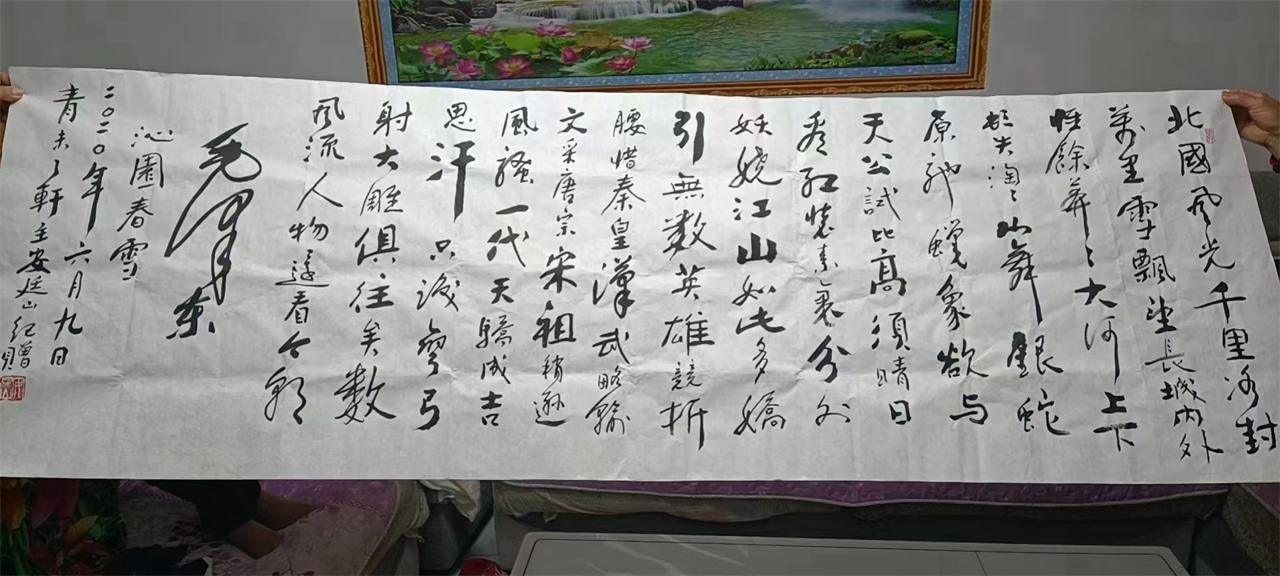 北國風光千里冰封
萬里雪飄望長城內外
惟餘莽々大河上下
頓失滔々山舞銀蛇
原驰蠟象欲与
天公試比高須晴日
看红裝素裹分外
妖嬈江山如此多嬌
引無数英雄競折
腰惜秦皇漢武略輸
文采唐宗宋祖稍遜
風騷一代天驕成吉
思汗只識彎弓
射大雕俱往矣数
風流人物還看今朝
毛泽东
沁園春雪
二〇二〇年六月九日
青未了軒主安廷山紀贈